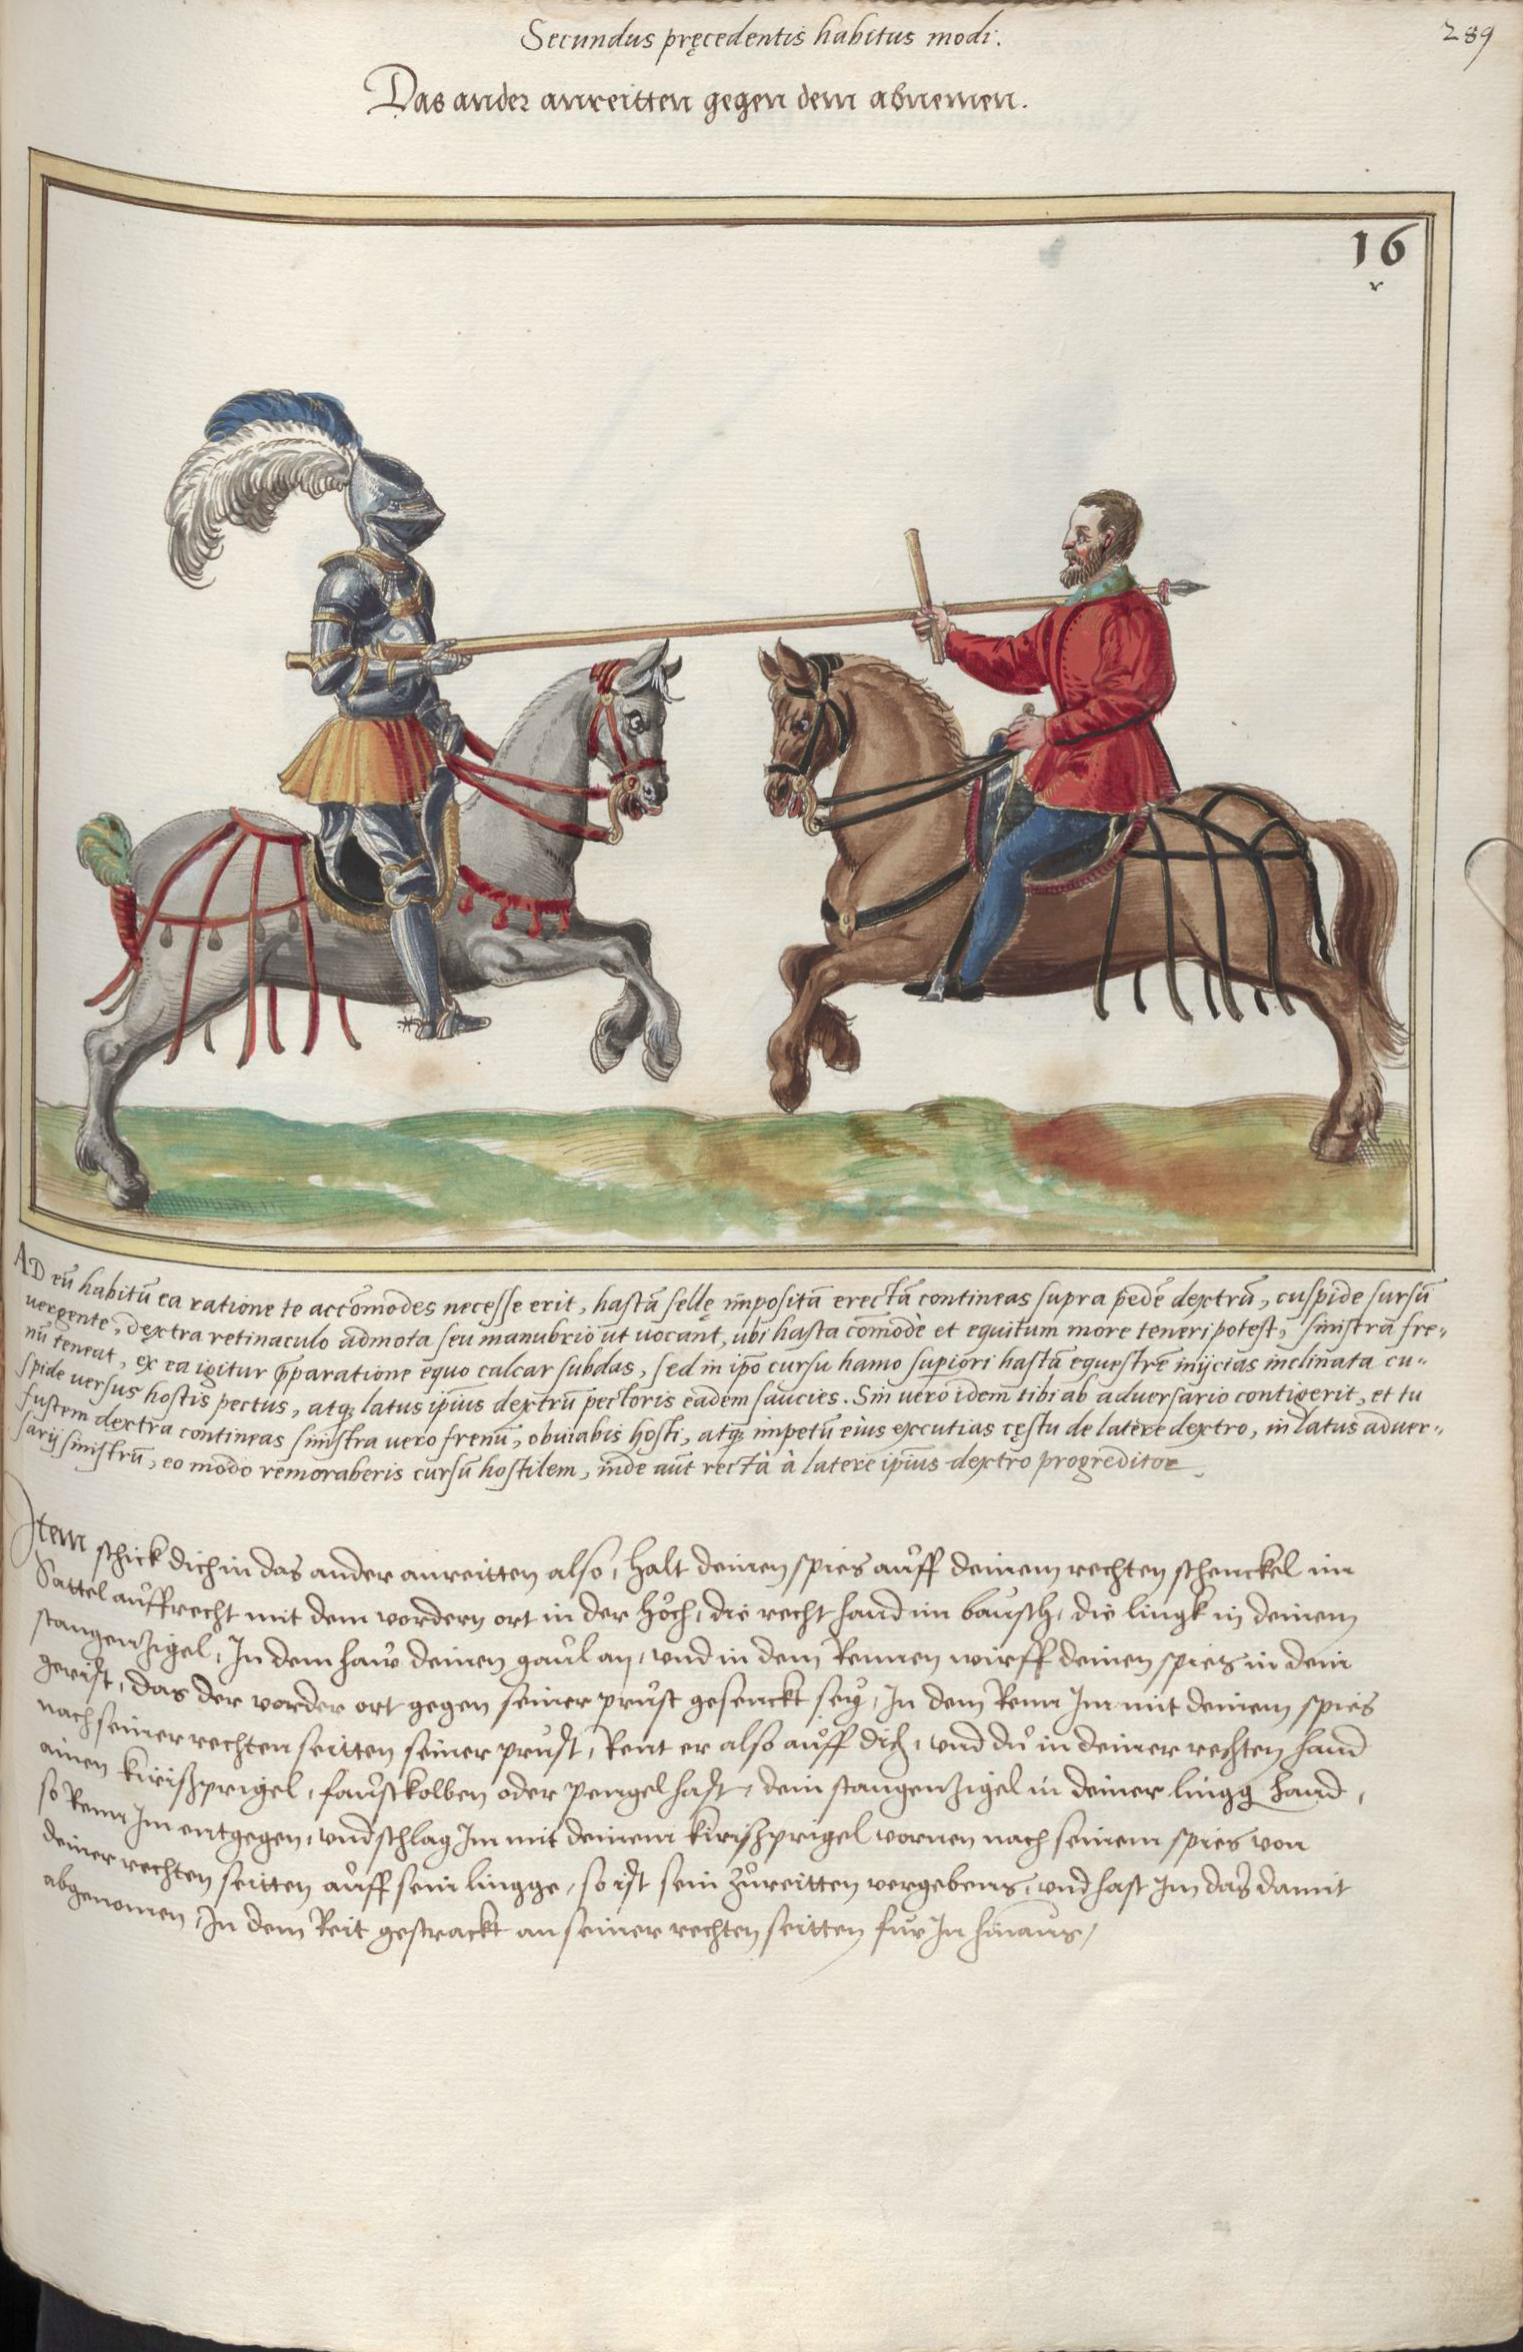 Secundus pręcedentis habitus modi.
289
Das ander anreitten gegen dem abnemen.
16
AD eū habitū ea ratione te accōmodes necesse erit, hastā sellę impositā erectā contineas supra pedē dextrū, cuspide sursū
uergente, dextra retinaculo admota seu manubrio ut uocant, ubi hasta cōmodè et equitum more teneri potest, sinistra fre-
nū teneat, ex ea igitur p̄paratione equo calcar subdas, sed in ip̄o cursu hamo supiori hastā equestrē inijcias inclinata cu-
spide uersus hostis pectus, atq; latus ip̄ius dextrū pectoris eadem saucies. Sin uero idem tibi ab aduersario contigerit, et tu
fustem dextra contineas sinistra uero frenū, obuiabis hosti, atq; impetū eius excutias cęstu de latere dextro, in latus aduer-
sarij sinistrū, eo modo remoraberis cursū hostilem, inde aūt rectà à latere ip̄ius dextro progreditor.
Item schick dich in das ander anreitten also, halt deinen spies auff deinem rechten schenckel im
Sattel auffrecht mit dem vordern ort in der höch, die recht hand im bausch, die lingk in deinem
stangenzigel, In dem haw deinen gaul an, vnd in dem Rennen wirff deinen spies in dein
gerist, das der vorder ort gegen seiner prust gesenckt sey, In dem Renn Im mit deinem spies
nach seiner rechten seitten seiner prust, Rent er also auff dich, vnd du in deiner rechten hand
ainen kirißprigel, faustkolben oder pengel hast, dein stangenzigel in deiner lingg hand,
so Renn Im entgegen, vnd schlag Im mit deinem kirißprigel vornen nach seinem spies von
deiner rechten seitten auff sein lingge, so ist sein zureitten vergebens, vnd hast Im das damit
abgenomen, In dem Reit gestrackt an seiner rechten seitten für In hinaus,